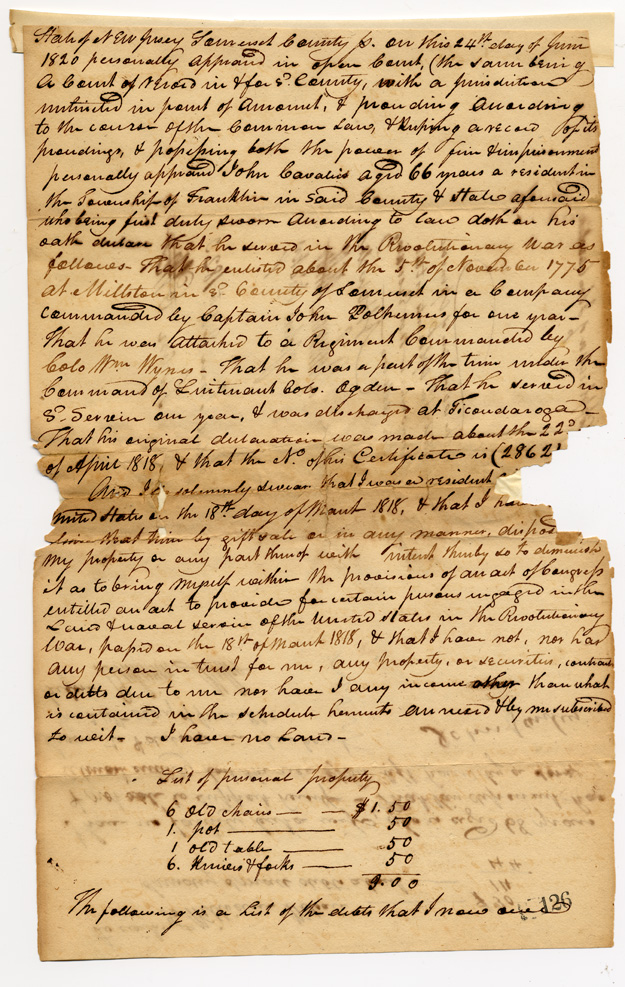 State of New Jersey Somerset County ss. on this 24th day of June
1820 personally appeared in open Court, (the same being
a Court of record in & for sd. County, with a Jurisdiction
unlimited in point of Amount, & proceeding according
to the course of the Common Law, & keeping a record of its
proceedings, & possessing both the power of fine & imprisonment
personally appeared John Cavalier aged 66 years a resident in
the Township of Franklin in said County & State aforesaid
who being first duly sworn according to law doth on his
oath declare that he served in the Revolutionary War as
follows - That he enlisted about the 5th of November 1775
at Millston in sd. County of Somerset in a Company
commanded by Captain John Polhemus for one year -
That he was attached to a Regiment Commanded by
Colo Wm Wynes - That he was a part of the time under the
Command of Lieutenant Colo. Ogden - That he served in
sd. Service one year, & was discharged at Ticondaroga -
That his original declaration was made about the 22d
of April 1818, & that the No. of his Certificate is (2862
And I do solemnly swear that I was a resident
United States on the 18th day of March 1818, & that I have
since that time by gift sale or in any manner, dispos
my property or any part thereof with intent thereby so to diminish
it as to bring myself within the provisions of an act of Congress
entitled an act to provide for certain persons engaged in the
Land & naval service of the United States in the Revolutionary
War, passed on the 18th of March 1818, & that I have not, nor has
any person in trust for me, any property, or securities, contracts
or debts due to me nor have I any income other than what
is contained in the schedule hereunto annexed & by me subscribed
to wit - I have no Land -
List of personal property
6 Old chairs — — $1. 50
1. pot — 50
1 old table — 50
6. Knives & forks — 50
3.00
The following is a List of the debts that I now owe
126